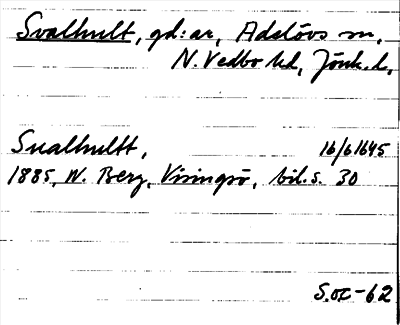 Svalhult, gd:ar, Adelövs sn,
N. Vedbo hd, Jönk. l.
Sualhultt, 16/6 1645
1885, W. Berg, Visingsö, bil. s. 30
S.oc-62